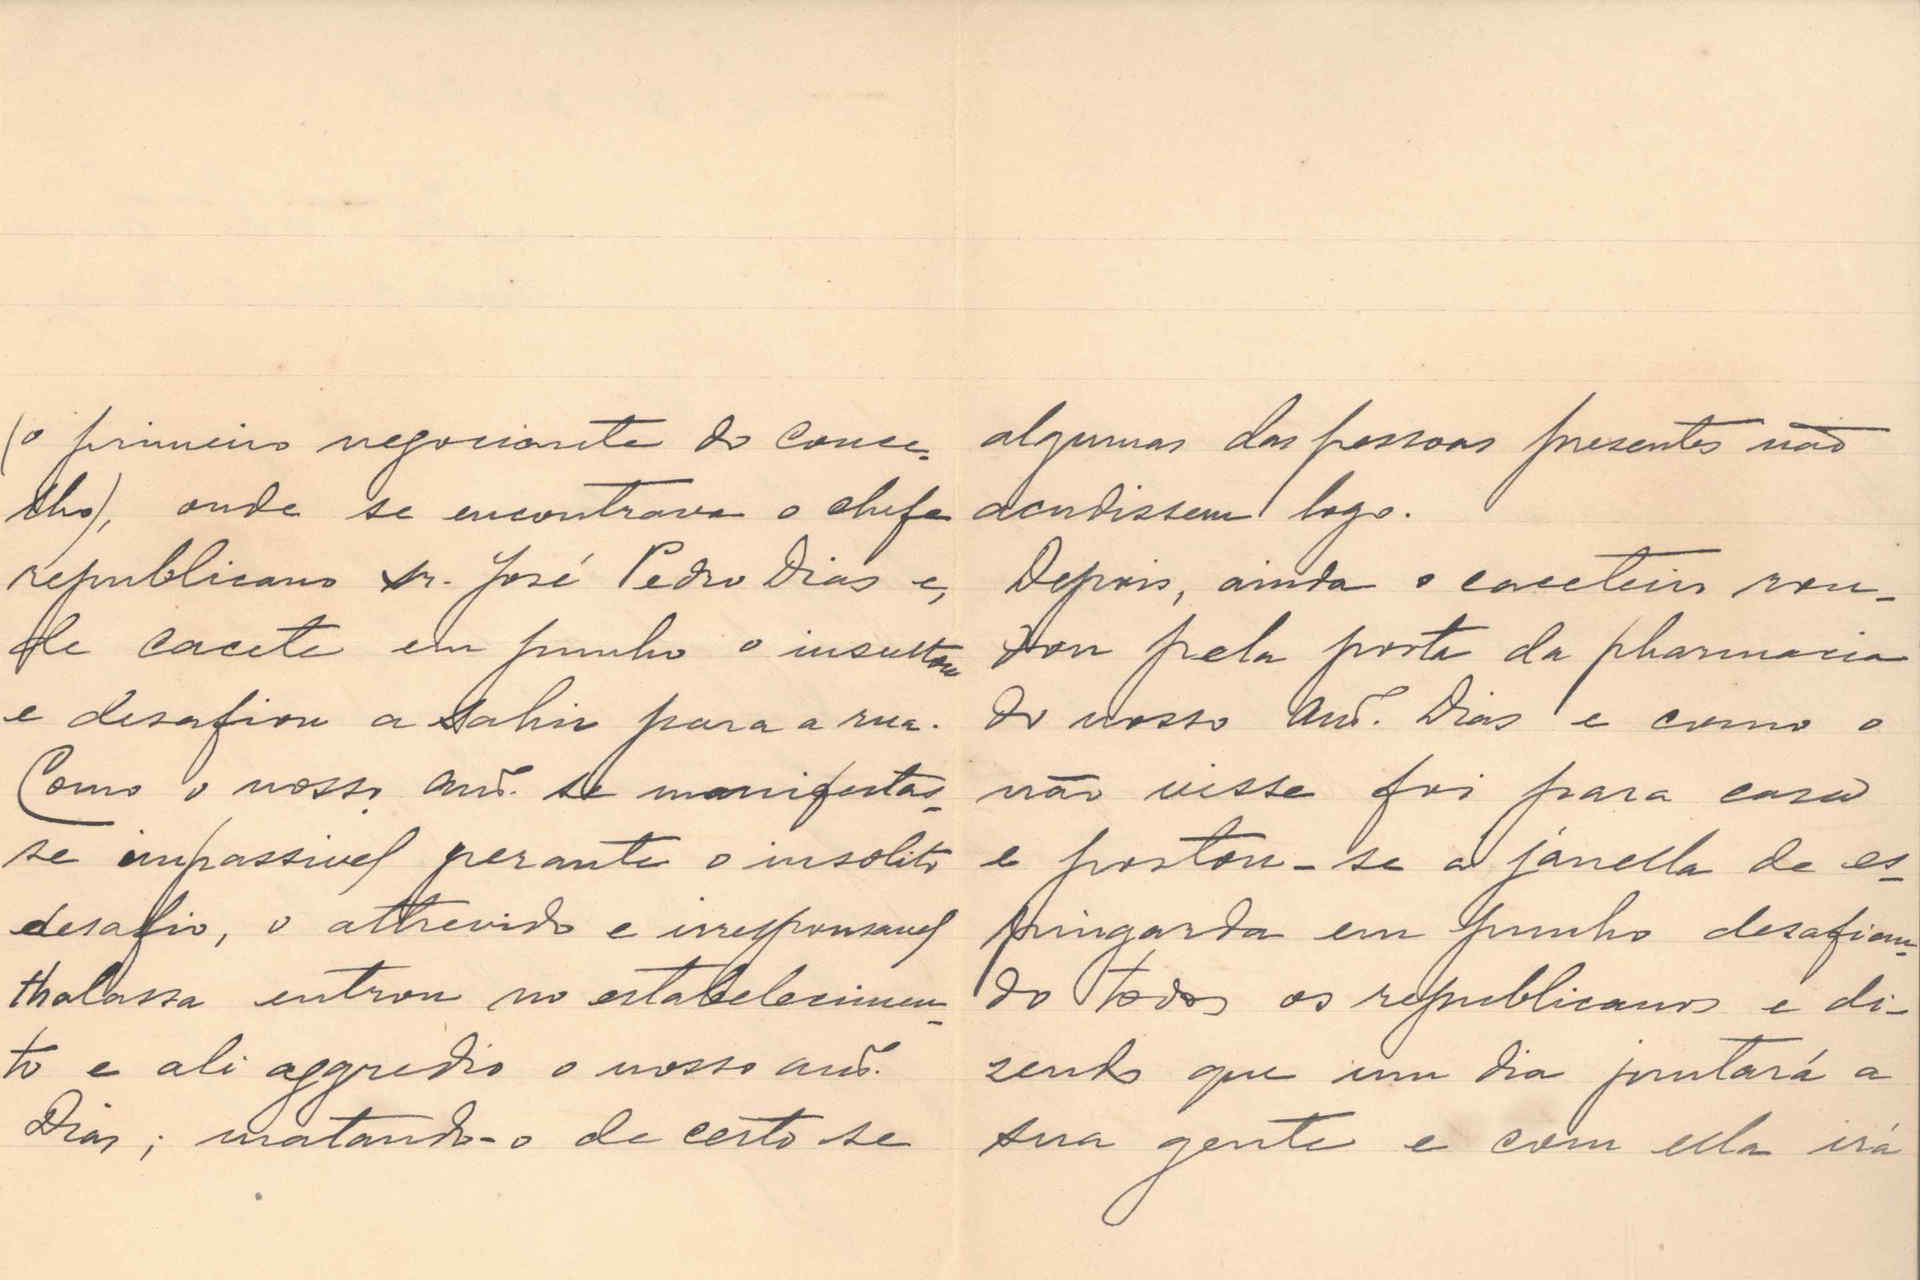 (o primeiro negociante do conce-
lho), onde se encontrava o chefe
republicano sr. José Pedro Dias e,
de cacete em punho o insultou
e desafiou a sahir para a rua.
Como o nosso amº. se manifestas-
se impassivel perante o insolito
desafio, o atrevido e irresponsavel
thalassa entrou no estabelecimen-
to e ali aggredio o nosso amº.
Dias; matando-o de certo se
algumas das pessoas presentes não
acudissem logo.
Depois, ainda o caceteiro ron-
dou pela porta da pharmacia
do nosso amº. Dias e como o
não visse foi para casa
e postou-se á janella de es-
pingarda em punho desafian-
do todos os republicanos e di-
zendo que um dia juntará a
sua gente e com ella irá